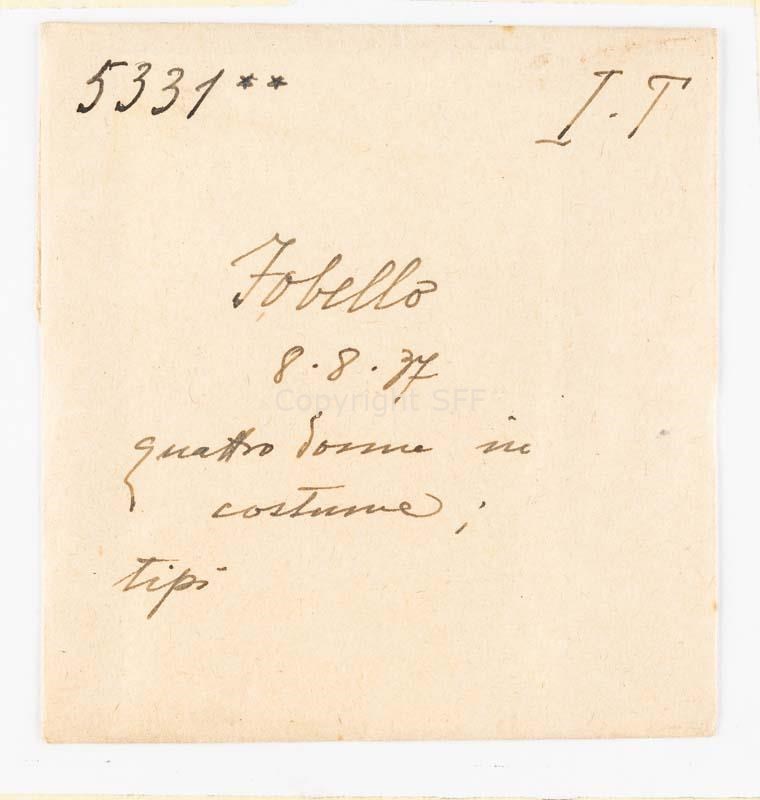 5331** I.T
Fobello
8.8.37
Copyright SFF
quattro donne in
costume;
tipi